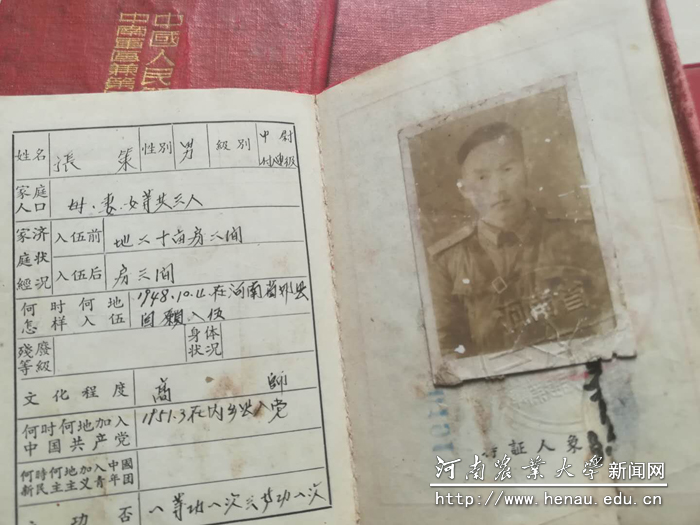 中國人民
中南軍區兼第
姓名 張策 性別 男 級別 中尉
付連級
家庭人口 母、妻、女等共三人
家庭經濟状况 入伍前 地二十亩房二间
入伍后 房三间
何时何地怎样入伍 1948.10.止在河南省郏县
自願入伍
殘廢等級 身体状况
文化程度 高师
何时何地加入中国共产党 1951.3在内乡县入党
何时何地加入中國新民主主义青年团
功否 一等功一次三等功一次
河南省
持証人象
河南农业大学新闻网
http://www.henau.edu.cn